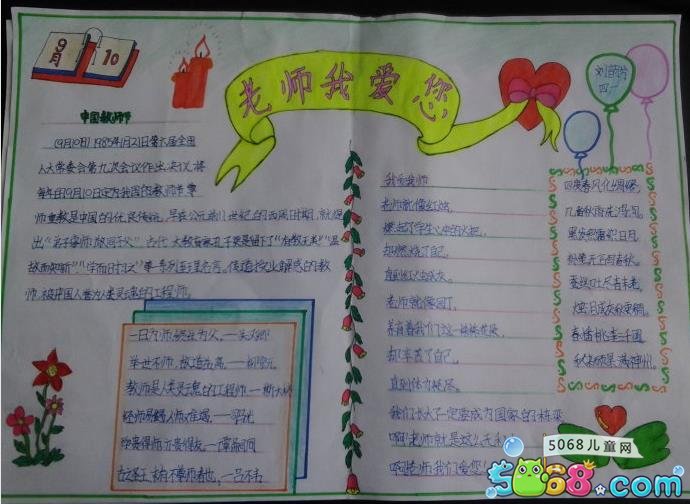 9月10
老师我爱您
四一
中国教师节
(9月10日) 1985年1月21日第六届全国
人大常委会第九次会议作出决议,将
每年的9月10日定为我国的教师节尊
师重教是中国的优良传统,早在公元前11世纪的西周时期,就提
出“弟子事师,敬同于父” 古代大教育家孔子更是留下了“有教无类”“温
故而知新”“学而时习之”等一系列至理名言。传道授业解惑的教
师,被中国人誉为人类灵魂的工程师。
一日为师,终生为父,——关汉卿
举世不师,故道益离——柳宗元
教师是人类灵魂的工程师——斯大林
经师易得,人师难遇
学贵得师,亦贵得友
疾学在于尊师——吕不韦
我爱老师
老师就像红烛,
燃起了学生心中的火把,
却燃烧了自己,
直到化成灰。
老师就像园丁,
养育着我们这一株株花朵,
却辛苦了自己,
直到体力耗尽。
我们长大了一定要成为国家的栋梁
啊!老师就是这么无私
啊!老师我们爱您!
四度春风化绸缪,
几番秋雨洗鸿沟。
黑发积霜织日月,
粉笔无言写春秋。
蚕丝吐尽春未老,
烛泪成灰秋更稠。
春播桃李三千圃,
秋来硕果满神州。
5068儿童网
5068.com